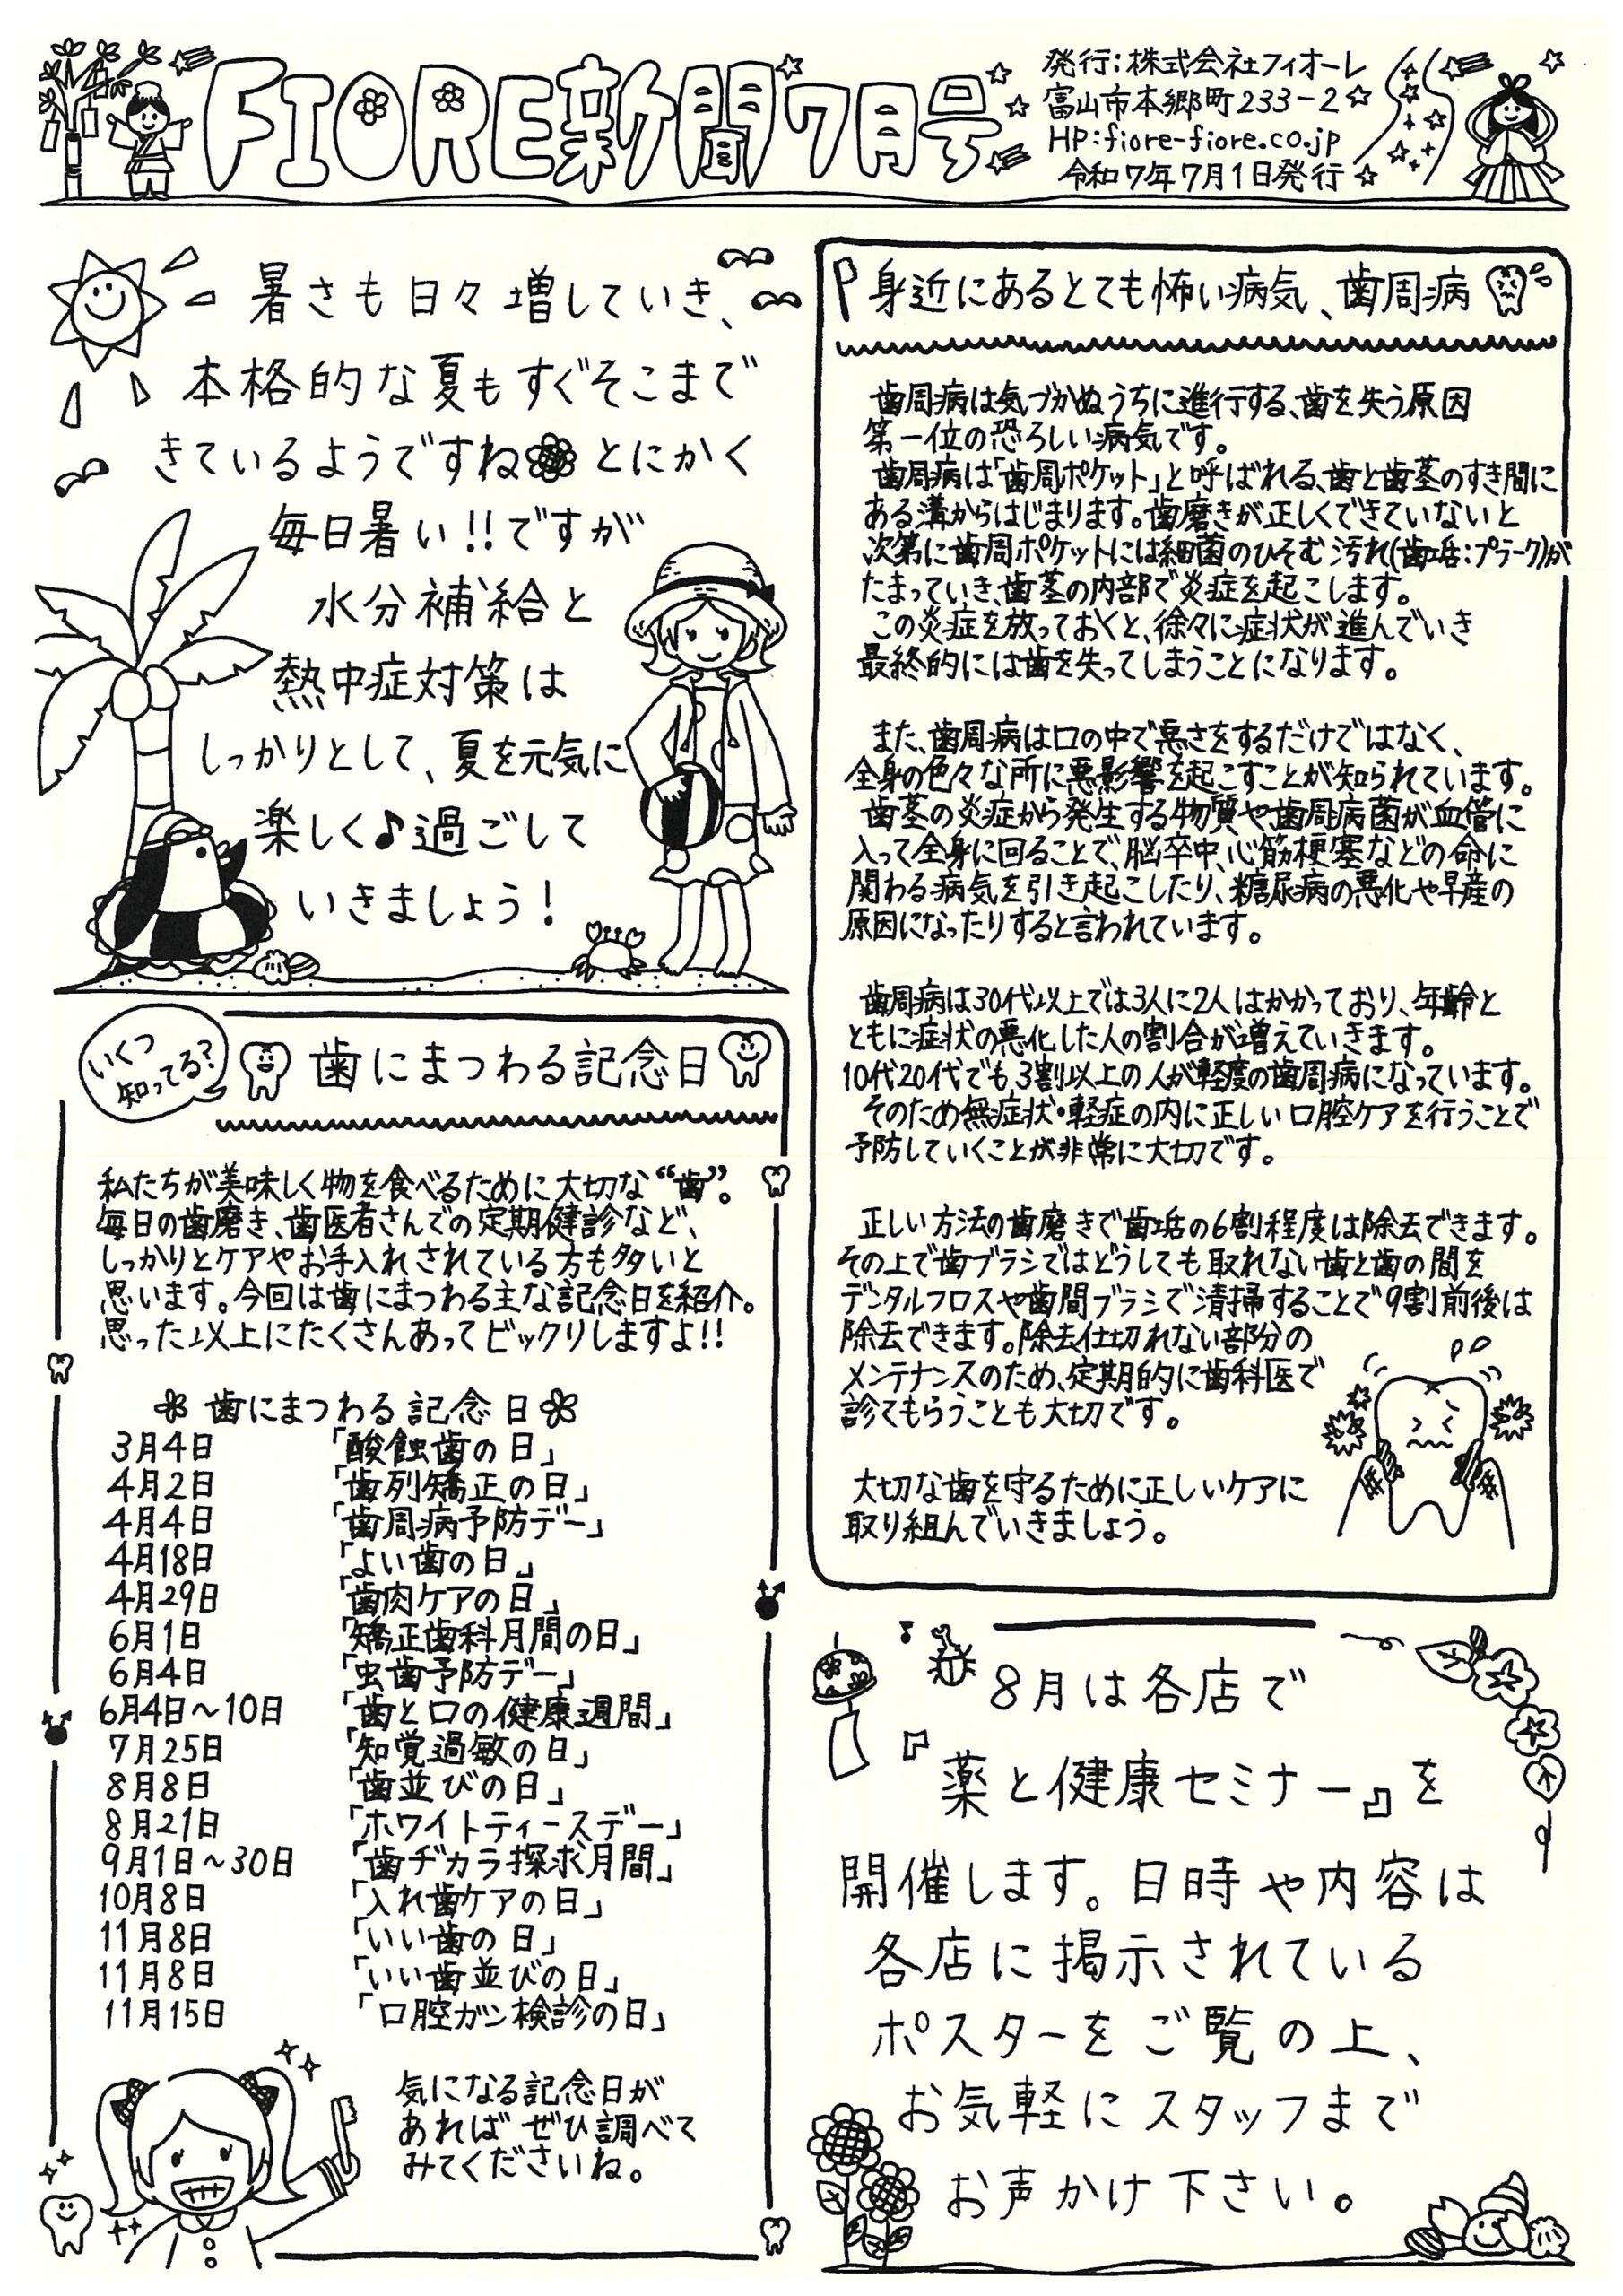 FIORE新聞7月号
発行:株式会社フィオーレ
富山市本郷町233-2
HP:fiore-fiore.co.jp
令和7年7月1日発行
暑さも日々増していき、
本格的な夏もすぐそこまで
きているようですね とにかく
毎日暑い!!ですが
水分補給と
熱中症対策は
しっかりとして、夏を元気に
楽しく♪過ごして
いきましょう!
いくつ
知ってる?
歯にまつわる記念日
私たちが美味しく物を食べるために大切な“歯”。
毎日の歯磨き、歯医者さんでの定期健診など、
しっかりとケアやお手入れされている方も多いと
思います。今回は歯にまつわる主な記念日を紹介。
思った以上にたくさんあってビックリしますよ!!
歯にまつわる記念日
3月4日 「酸蝕歯の日」
4月2日 「歯列矯正の日」
4月4日 「歯周病予防デー」
4月18日 「よい歯の日」
4月29日 「歯肉ケアの日」
6月1日 「矯正歯科月間の日」
6月4日 「虫歯予防デー」
6月4日~10日 「歯と口の健康週間」
7月25日 「知覚過敏の日」
8月8日 「歯並びの日」
8月21日 「ホワイトティースデー」
9月1日~30日 「歯ヂカラ探求月間」
10月8日 「入れ歯ケアの日」
11月8日 「いい歯の日」
11月8日 「いい歯並びの日」
11月15日 「口腔ガン検診の日」
気になる記念日が
あればぜひ調べて
みてくださいね。
身近にあるとても怖い病気、歯周病
歯周病は気づかぬうちに進行する、歯を失う原因
第一位の恐ろしい病気です。
歯周病は「歯周ポケット」と呼ばれる、歯と歯茎のすき間に
ある溝からはじまります。歯磨きが正しくできていないと
次第に歯周ポケットには細菌のひそむ汚れ(歯垢:プラーク)が
たまっていき、歯茎の内部で炎症を起こします。
この炎症を放っておくと、徐々に症状が進んでいき
最終的には歯を失ってしまうことになります。
また、歯周病は口の中で悪さをするだけではなく、
全身の色々な所に悪影響を起こすことが知られています。
歯茎の炎症から発生する物質や歯周病菌が血管に
入って全身に回ることで、脳卒中、心筋梗塞などの命に
関わる病気を引き起こしたり、糖尿病の悪化や早産の
原因になったりすると言われています。
歯周病は30代以上では3人に2人はかかっており、年齢と
ともに症状の悪化した人の割合が増えていきます。
10代20代でも、3割以上の人が軽度の歯周病になっています。
そのため無症状・軽症の内に正しい口腔ケアを行うことで
予防していくことが非常に大切です。
正しい方法の歯磨きで歯垢の6割程度は除去できます。
その上で歯ブラシではどうしても取れない歯と歯の間を
デンタルフロスや歯間ブラシで清掃することで9割前後は
除去できます。除去仕切れない部分の
メンテナンスのため、定期的に歯科医で
診てもらうことも大切です。
大切な歯を守るために正しいケアに
取り組んでいきましょう。
8月は各店で
『薬と健康セミナー』を
開催します。日時や内容は
各店に掲示されている
ポスターをご覧の上、
お気軽にスタッフまで
お声かけ下さい。